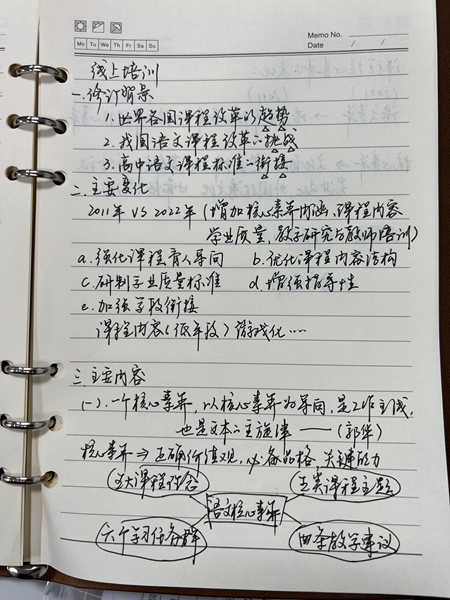 Memo No.
Mo Tu We Th Fr Sa Su
Date / /
线上培训
一.修订背景
1.世界各国课程改革的趋势
2.我国语文课程改革の挑战
3.高中语文课程标准の衔接
二.主要变化
2011年 VS 2022年(增加核心素养内涵,课程内容
学业质量,教学研究与教师培训)
a.强化课程育人导向 b.优化课程内容结构
c.研制学业质量标准 d.增强指导性
e.加强学段衔接
课程内容(低年段)游戏化……
三.主要内容
(一).一个核心素养,以核心素养为导向,是工作主线,
也是文本の主旋律——(郭华)
核心素养⇒正确价值观,必备品格,关键能力
五大课程理念 三类课程主题
语文核心素养
六个学习任务群 四条教学建议